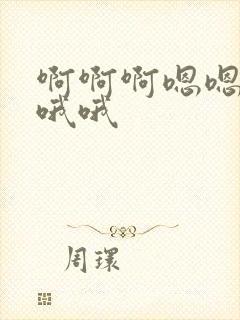 啊啊啊嗯嗯
哦哦
周環